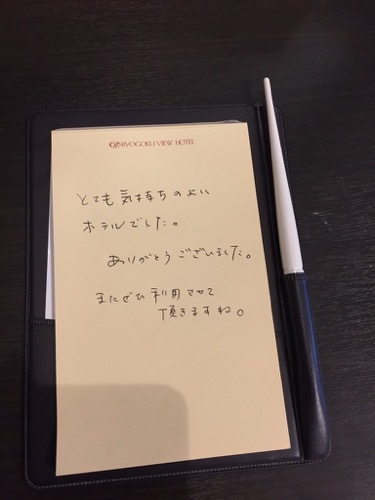 RYOGOKU VIEW HOTEL
とても気持ちのよい
ホテルでした。
ありがとうございました。
またぜひ利用させて
頂きますね。